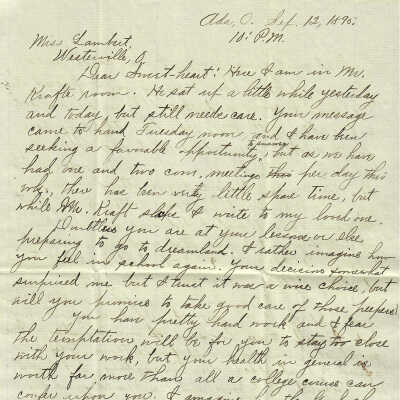 Ada, O. Sep. 12, 1895.
10: P.M.
Miss Lambert,
Westerville, O.
Dear Sweet-heart: Here I am in Mr.
Krafts room. He sat up a little while yesterday
and today, but still needs care. Your message
came to hand Tuesday noon and I have been
seeking a favorable opportunity to answer, but as we have
had one and two com. meetings this per day this
way, there has been very little spare time, but
while Mr. Kraft sleeps I write to my loved one.
Doubtless you are at your lessons or else
preparing to go to dreamland. I rather imagine how
you feel in school again. Your decision somewhat
surprised me but I trust it was a wise choice, but
will you promise to take good care of those peepers?
You have pretty hard work and I fear
the temptation will be for you to stay too close
with your work, but your health in general is
worth far more than all a college course can
confer upon you. I imagine